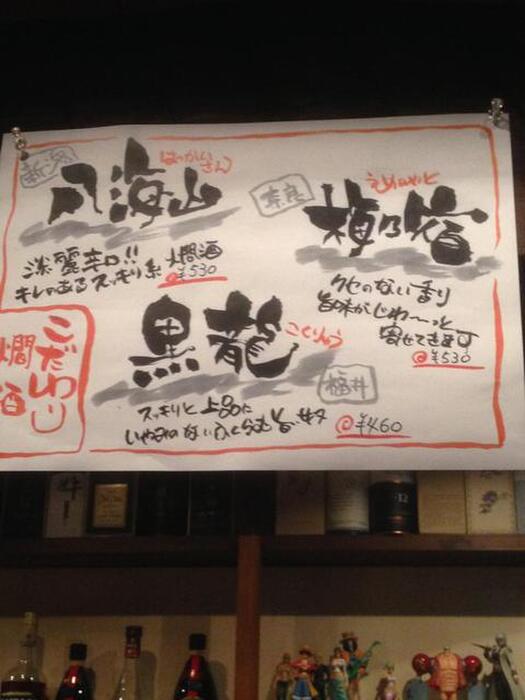 新潟
はっかいさん
八海山
淡麗辛口!! 燗酒
キレのあるスッキリ系 @¥530
奈良
うめのやど
梅乃宿
クセのない香り
旨味がじわ〜っと
寄せてきます
@¥530
こだわり
燗酒
黒龍
こくりゅう
福井
スッキリと上品に
いやみのないふくらむ旨サ
@¥460
12